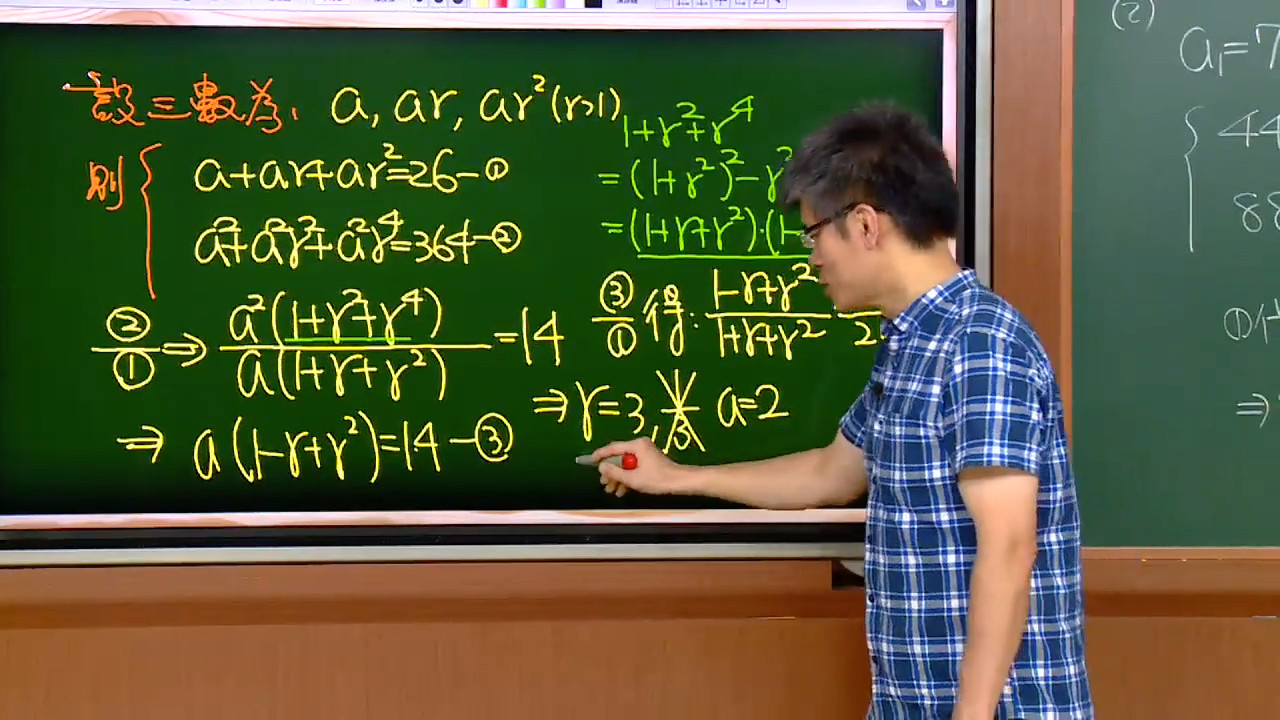 設三數為: a, ar, ar²(r>1)
則 { a+ar+ar²=26—①
a²+a²r²+a²r⁴=364—②
②/① ⇒ a²(1+r²+r⁴)/a(1+r+r²) =14
⇒ a(1-r+r²)=14—③
1+r²+r⁴
=(1+r²)²-r²
=(1+r+r²)·(1-
③/① 得: 1-r+r²/1+r+r²
⇒ r=3, a=2
(2)
a₁=7
44
88
①
⇒